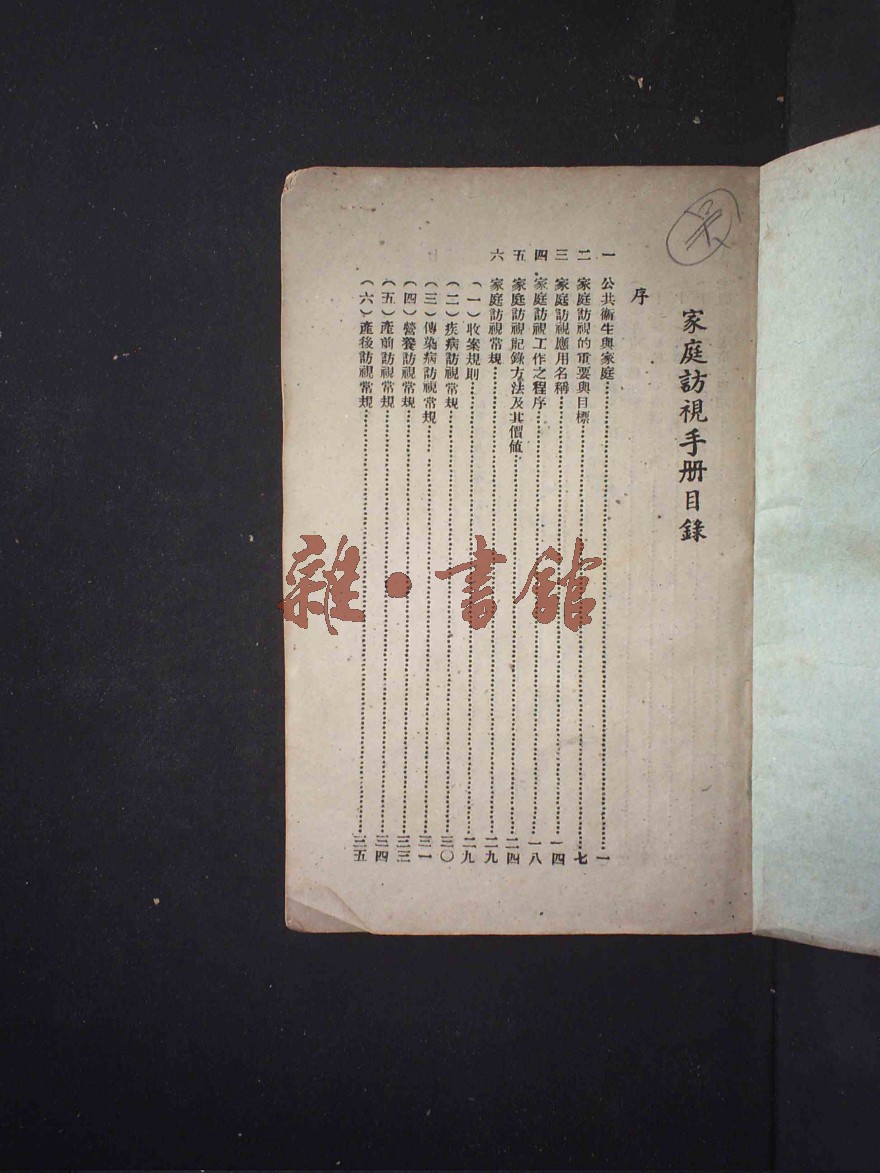 家庭訪視手册目錄
序
一 公共衞生與家庭……一
二 家庭訪視的重要與目標……七
三 家庭訪視應用名稱……一四
四 家庭訪視工作之程序……一八
五 家庭訪視記錄方法及其價値……二四
六 家庭訪視常規……二九
(一)收案規則……二九
(二)疾病訪視常規……三〇
(三)傳染病訪視常規……三一
(四)營養訪視常規……三三
(五)產前訪視常規……三四
(六)產後訪視常規……三五
雜·書館